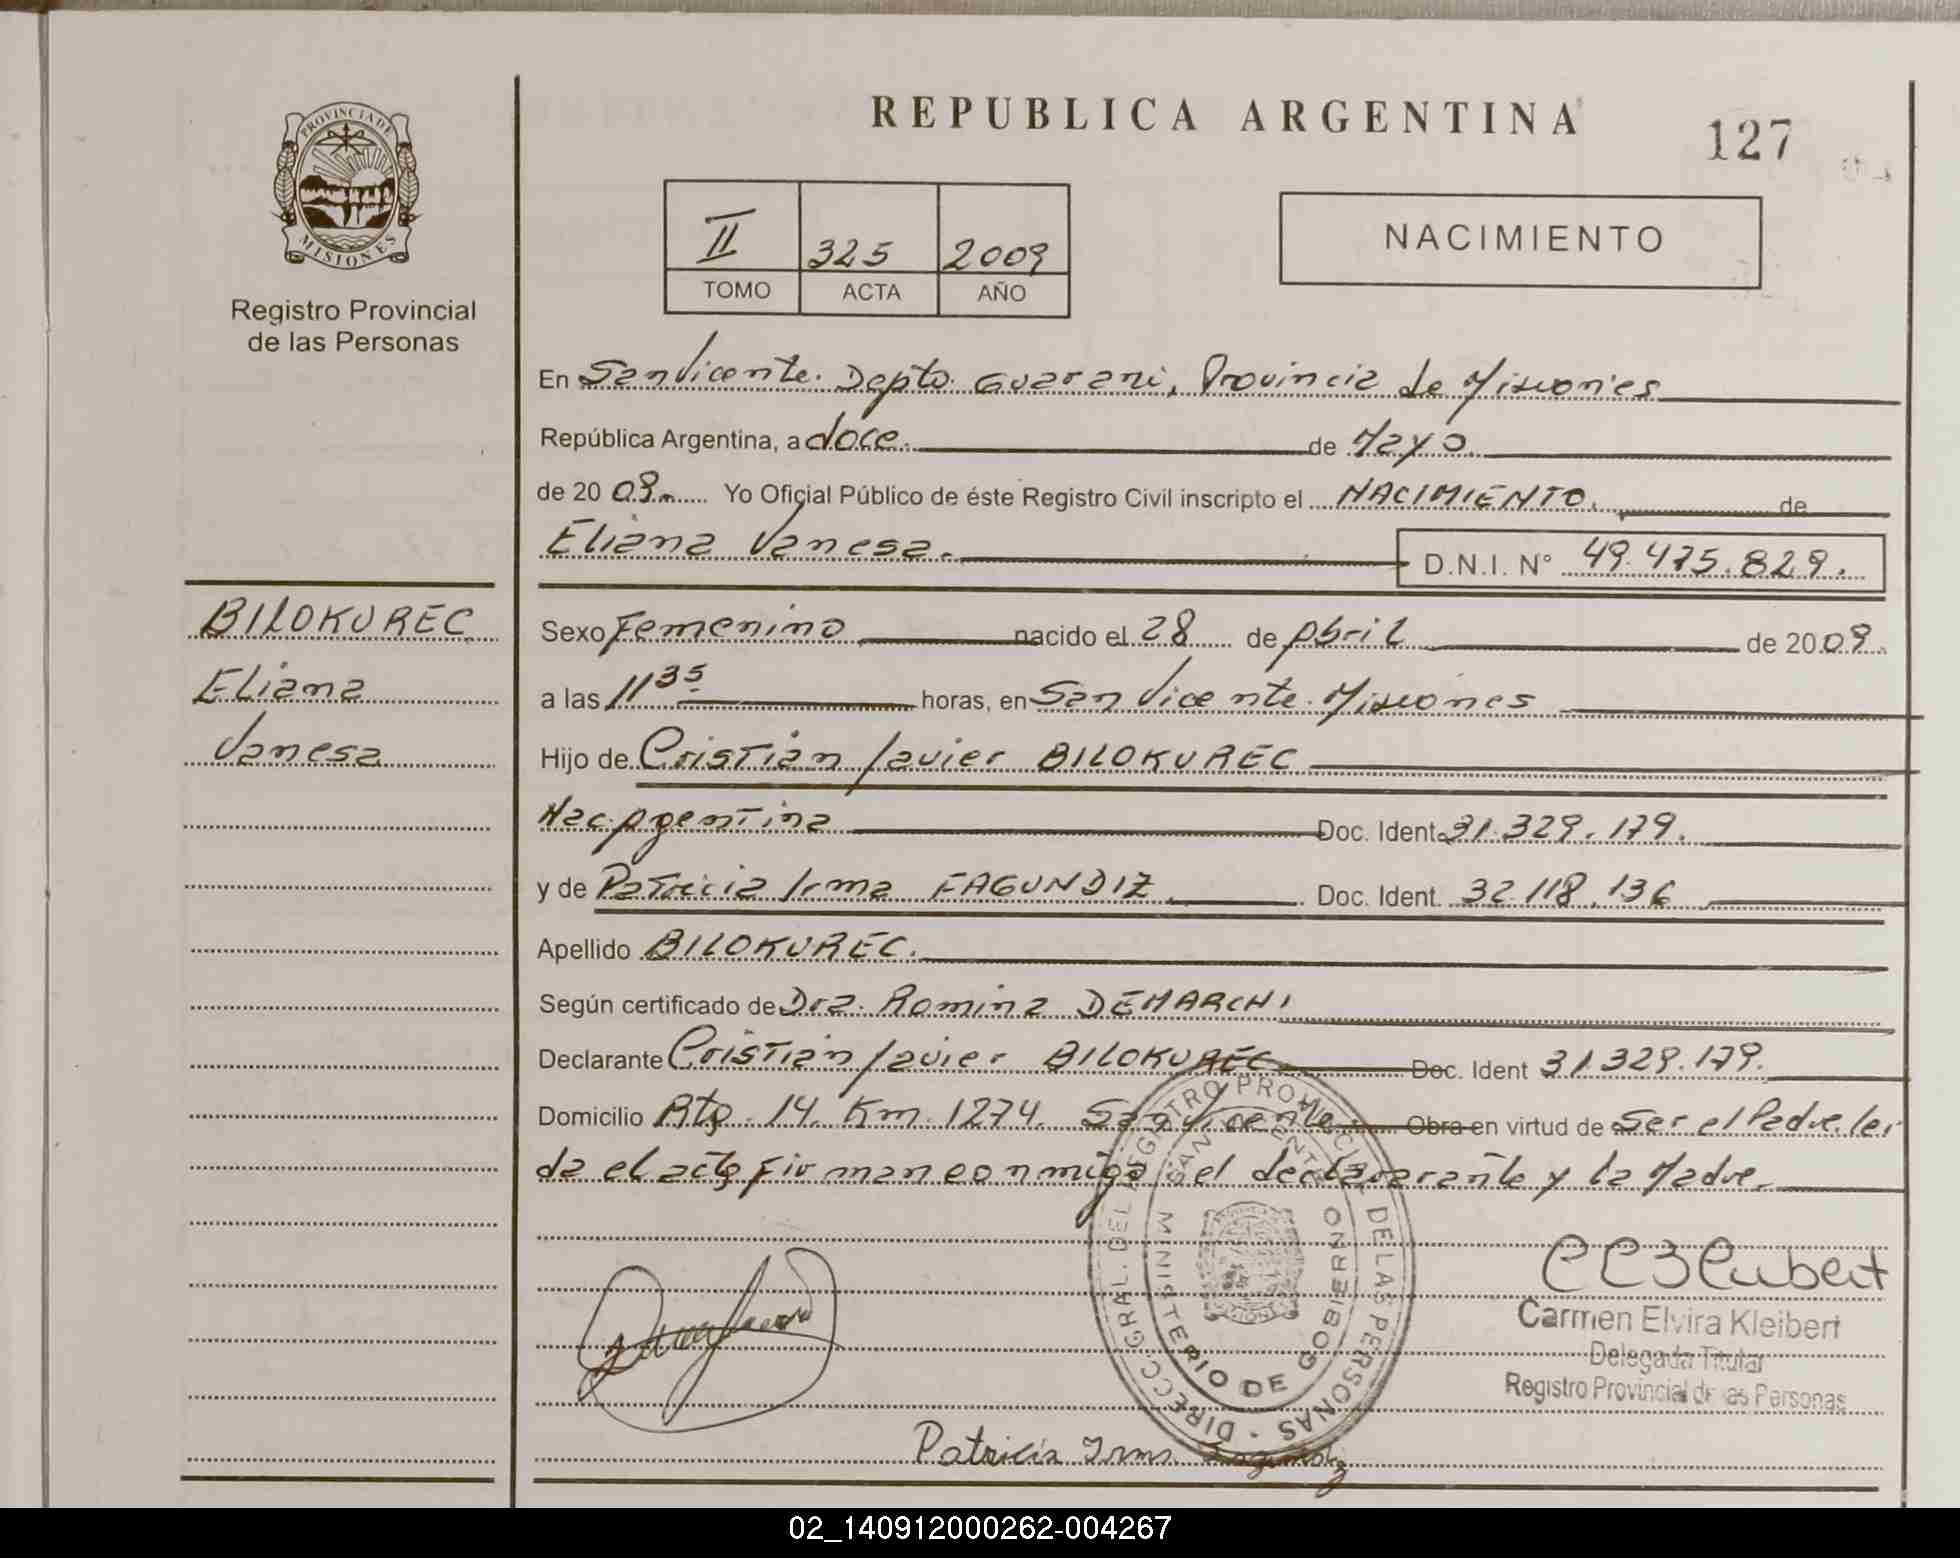 REPUBLICA ARGENTINA
127
PROVINCIA DE MISIONES
Registro Provincial
de las Personas
II 325 2009
TOMO ACTA AÑO
NACIMIENTO
En San Vicente. Depto. Guarani, Provincia de Misiones
República Argentina, a doce. de Mayo.
de 20 09. Yo Oficial Público de éste Registro Civil inscripto el NACIMIENTO. de
Eliana Vanesa. D.N.I. N° 49.475.829.
BILOKUREC
Eliana
Vanesa
Sexo Femenino nacido el 28 de Abril de 2009.
a las 11 35 horas, en San Vicente. Misiones
Hijo de Cristián Javier BILOKUREC
Nac. Agentina Doc. Ident. 31.329.179.
y de Patricia Irma FAGUNDIZ. Doc. Ident. 32.118.136
Apellido BILOKUREC.
Según certificado de Dra. Romina DEMARCHI
Declarante Cristián Javier BILOKUREC Doc. Ident 31.329.179.
Domicilio Rta. 14. Km. 1274. San Vicente. Obra en virtud de Ser el Padre. lei
da el acta firman conmigo el declararante y la Madre.
DIRECC. GRAL. DEL REGISTRO PROVINCIAL DE LAS PERSONAS
SAN VICENTE
MINISTERIO DE GOBIERNO
Carmen Elvira Kleibert
Delegada Titular
Registro Provincial de las Personas
Patricia Irma Fagundiz
02_140912000262-004267